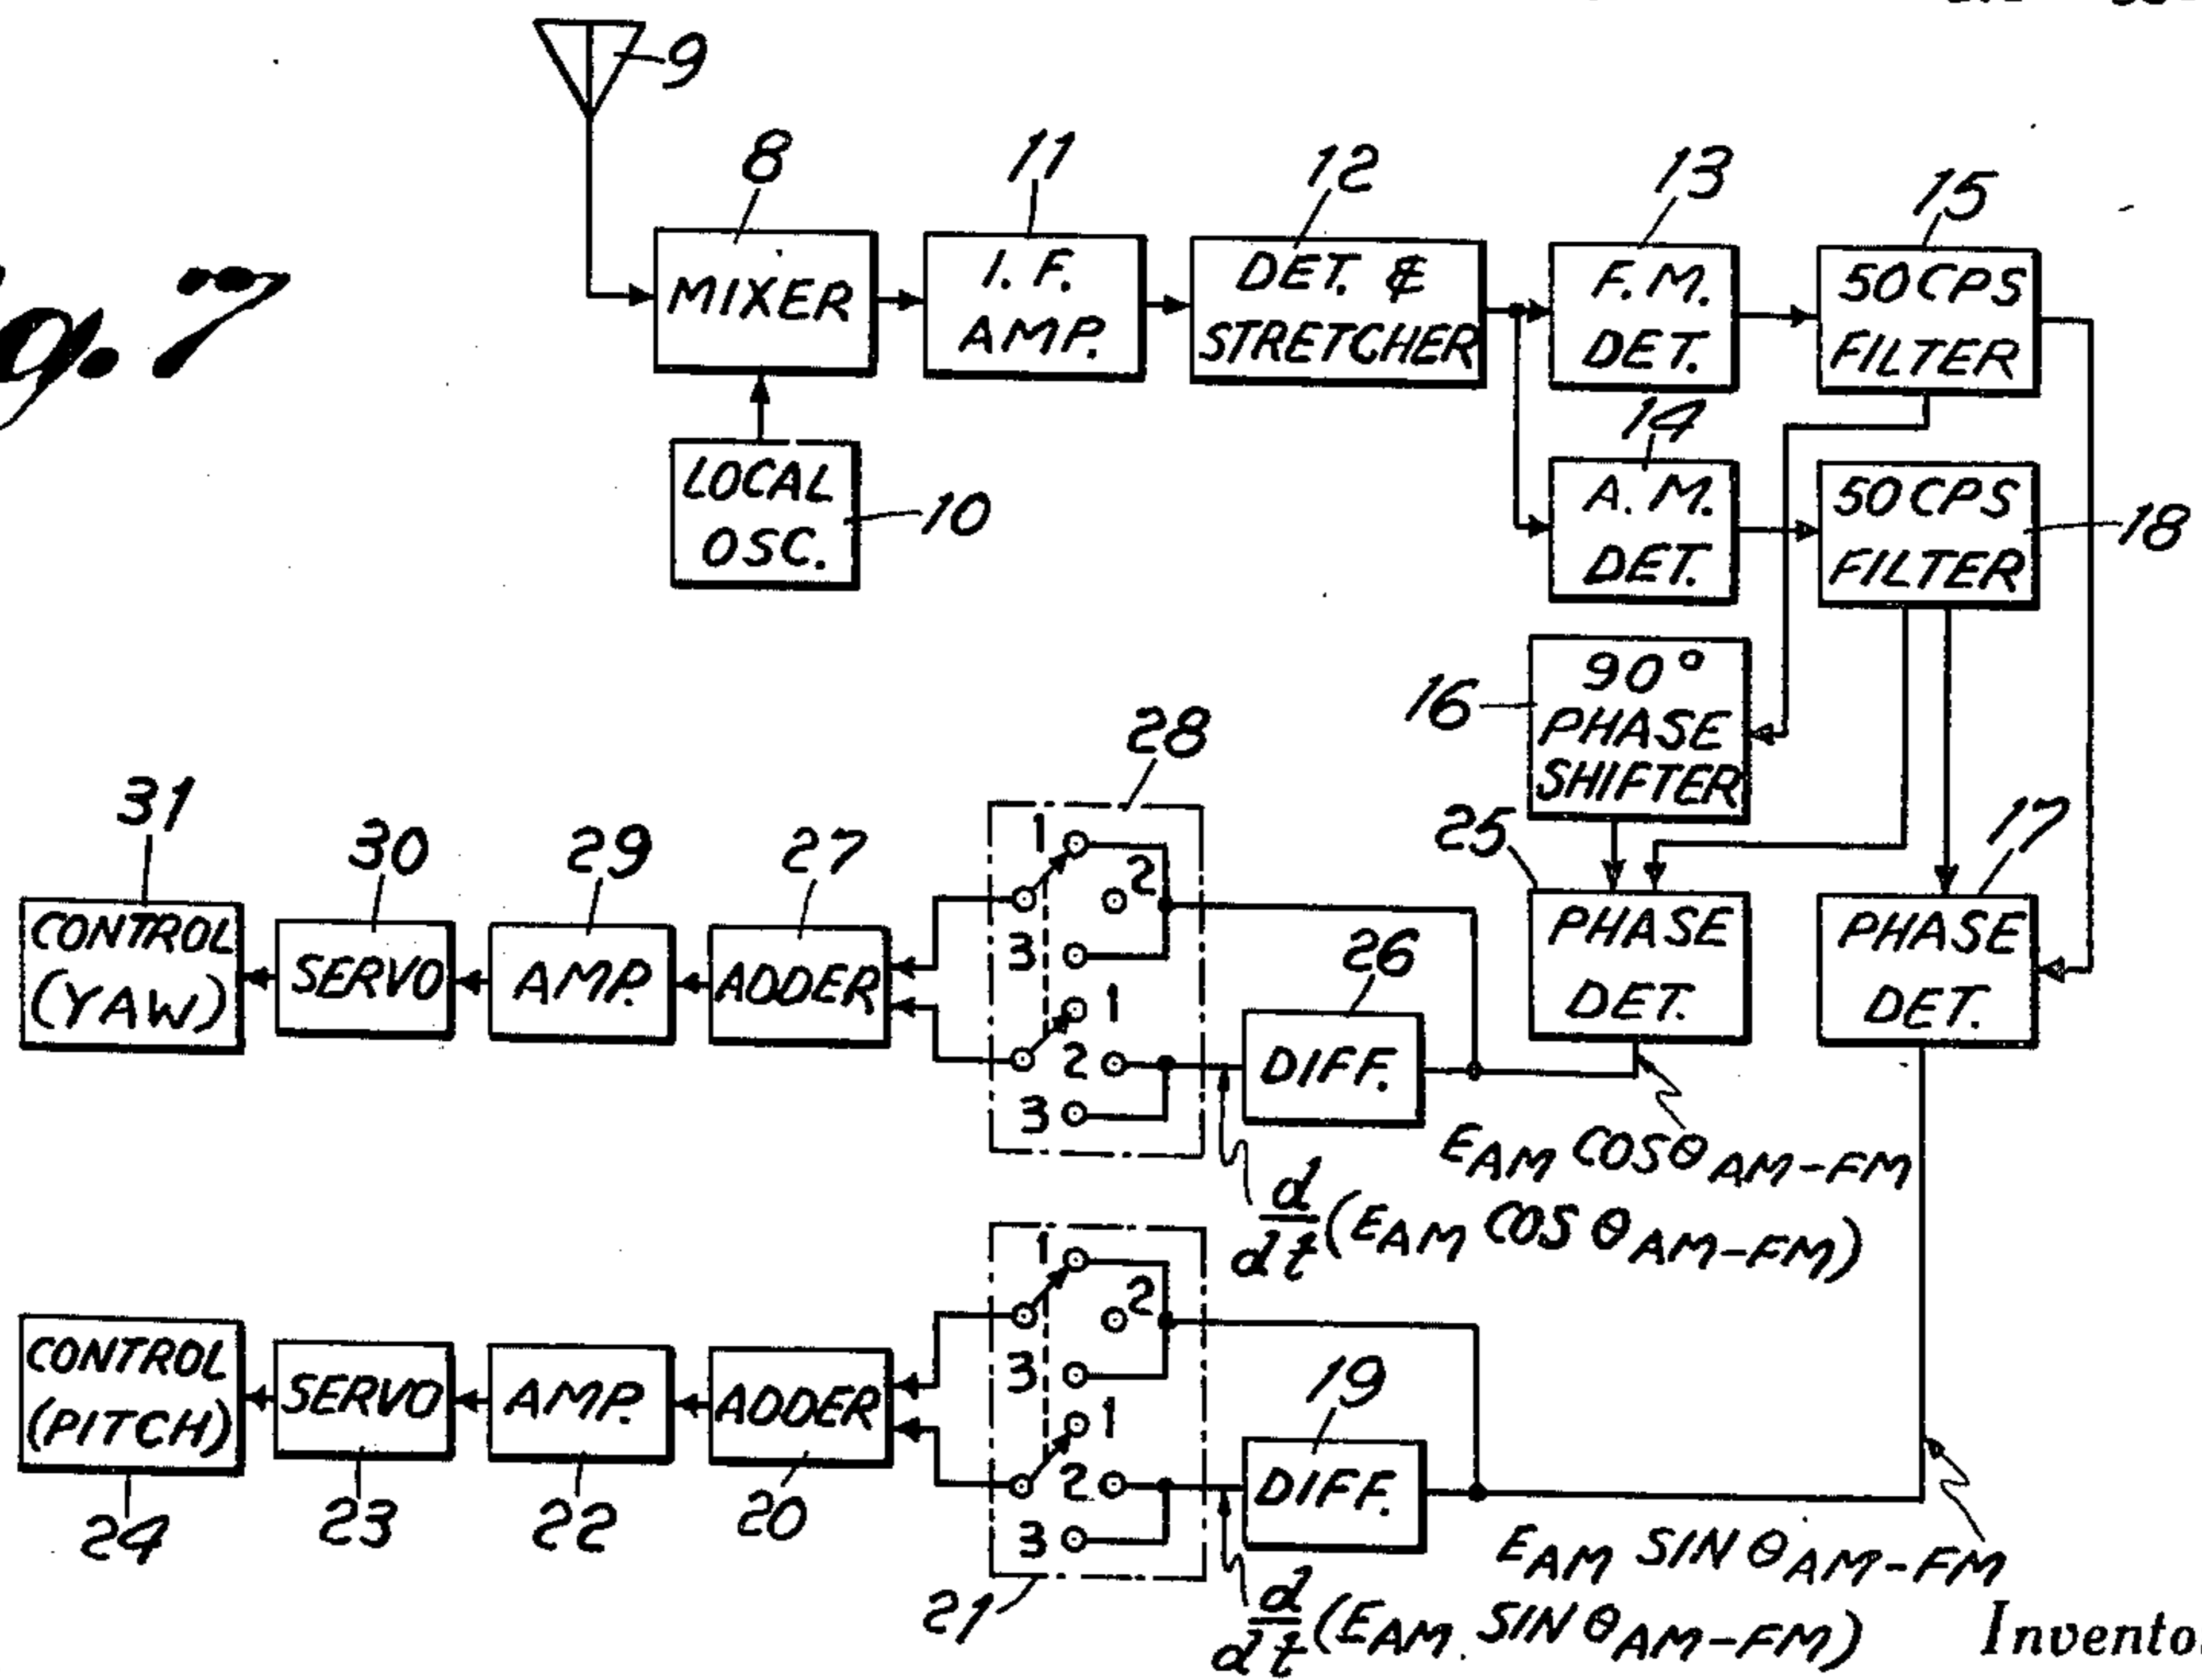 9
8
11
12
13
15
MIXER
I. F.
AMP.
DET. &
STRETCHER
F. M.
DET.
50 CPS
FILTER
LOCAL
OSC.
10
14
A. M.
DET.
50 CPS
FILTER
18
16
90°
PHASE
SHIFTER
28
25
17
31
30
29
27
1
2
3
1
2
3
26
CONTROL
(YAW)
SERVO
AMP.
ADDER
DIFF.
PHASE
DET.
PHASE
DET.
EAM COS θ AM-FM
d/dt (EAM COS θ AM-FM)
1
2
3
1
2
3
19
CONTROL
(PITCH)
SERVO
AMP.
ADDER
DIFF.
24
23
22
20
21
EAM SIN θ AM-FM
d/dt (EAM. SIN θ AM-FM)